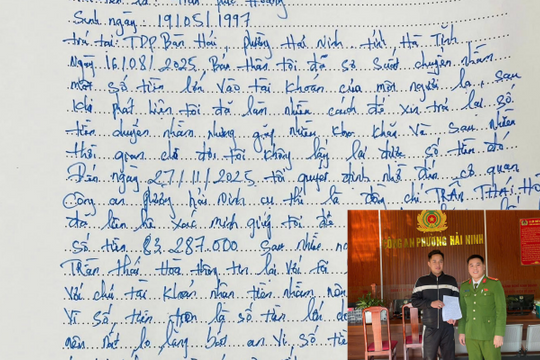 Sinh ngày: 19/05/1997
trú tại: TDP Bàn Hải, phường Hải Ninh, tỉnh, Hà Tĩnh
Ngày 16/08/2025 Bản thân tôi đã sơ suất chuyển nhầm
một số tiền lớn vào tài khoản của một người lạ, sau
khi phát hiện tôi đã làm nhiều cách để xin trả lại số
tiền chuyển nhầm nhưng gặp nhiều khó khăn và sau nhiều
thời gian chờ đợi tôi không lấy lại được số tiền đó
Đến ngày 27/11/2025 tôi quyết định nhờ đến cơ quan
Công an phường hải Ninh cụ thể là đồng chí TRẦN THÁI HÒ
đã liên hệ xác minh giúp tôi để
số tiền 83.287.000 sau nhận
Trần thái Hoà thông tin lại với tôi
Với chủ tài khoản nhận tiền nhầm
Vì số tiền trên là số tiền lớn
nên rất lo lắng bất an Vì số tiề
CÔNG AN PHƯỜNG HẢI NINH